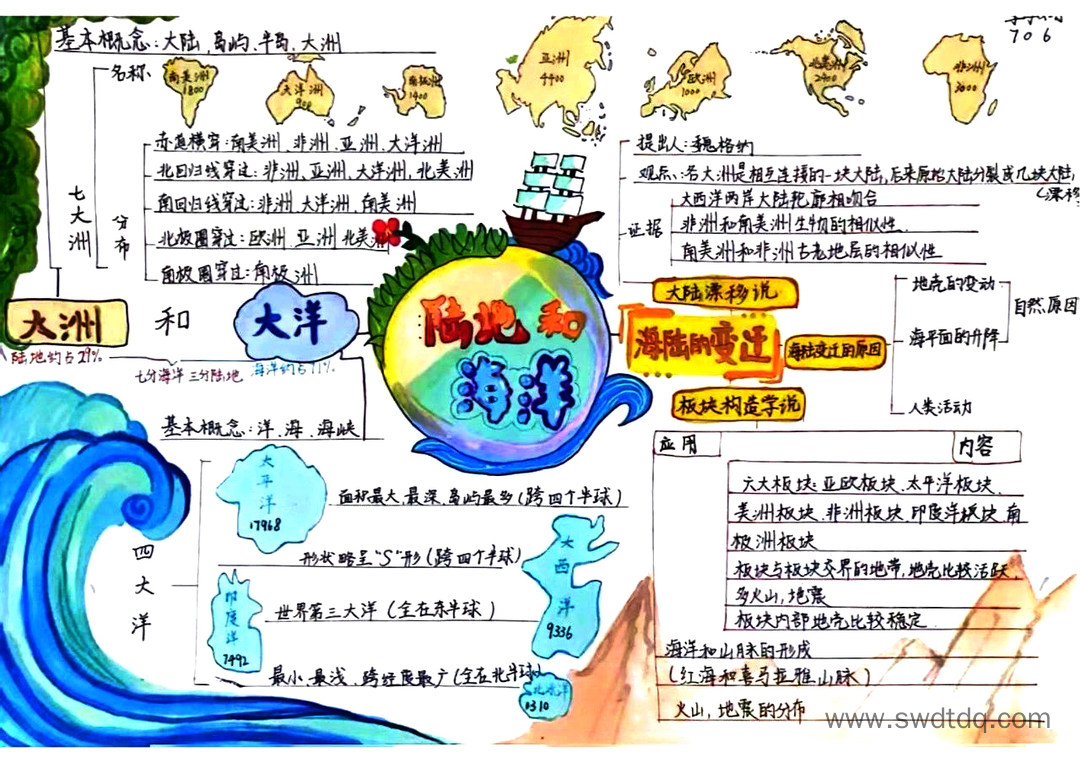 基本概念:大陆、岛屿、半岛、大洲
706
名称
南美洲
1800
大洋洲
900
南极洲
1400
亚洲
4400
欧洲
1000
北美洲
2400
非洲
3000
七大洲
分布
赤道横穿:南美洲、非洲、亚洲、大洋洲
北回归线穿过:非洲、亚洲、大洋洲、北美洲
南回归线穿过:非洲、大洋洲、南美洲
北极圈穿过:欧洲、亚洲、北美洲
南极圈穿过:南极洲
大洲
和
大洋
陆地约占29%
七分海洋 三分陆地
海洋约占71%
基本概念:洋、海、海峡
陆地和
海洋
提出人:魏格纳
观点:各大洲是相互连接的一块大陆,后来原始大陆分裂成几块大陆
(漂移
证据
大西洋两岸大陆轮廓相吻合
非洲和南美洲生物的相似性
南美洲和非洲古老地层的相似性
大陆漂移说
海陆的变迁
海陆变迁的原因
板块构造学说
地壳的变动
海平面的升降
自然原因
人类活动
四大洋
太平洋
17968
面积最大、最深、岛屿最多(跨四个半球)
形状略呈"S"形(跨四个半球)
大西洋
9336
印度洋
7492
世界第三大洋(全在东半球)
最小、最浅、跨经度最广(全在北半球)
北冰洋
1310
应用
内容
六大板块:亚欧板块、太平洋板块、
美洲板块、非洲板块、印度洋板块、南
极洲板块
板块与板块交界的地带,地壳比较活跃,
多火山,地震
板块内部地壳比较稳定
海洋和山脉的形成
(红海和喜马拉雅山脉)
火山,地震的分布
www.swdtdq.com